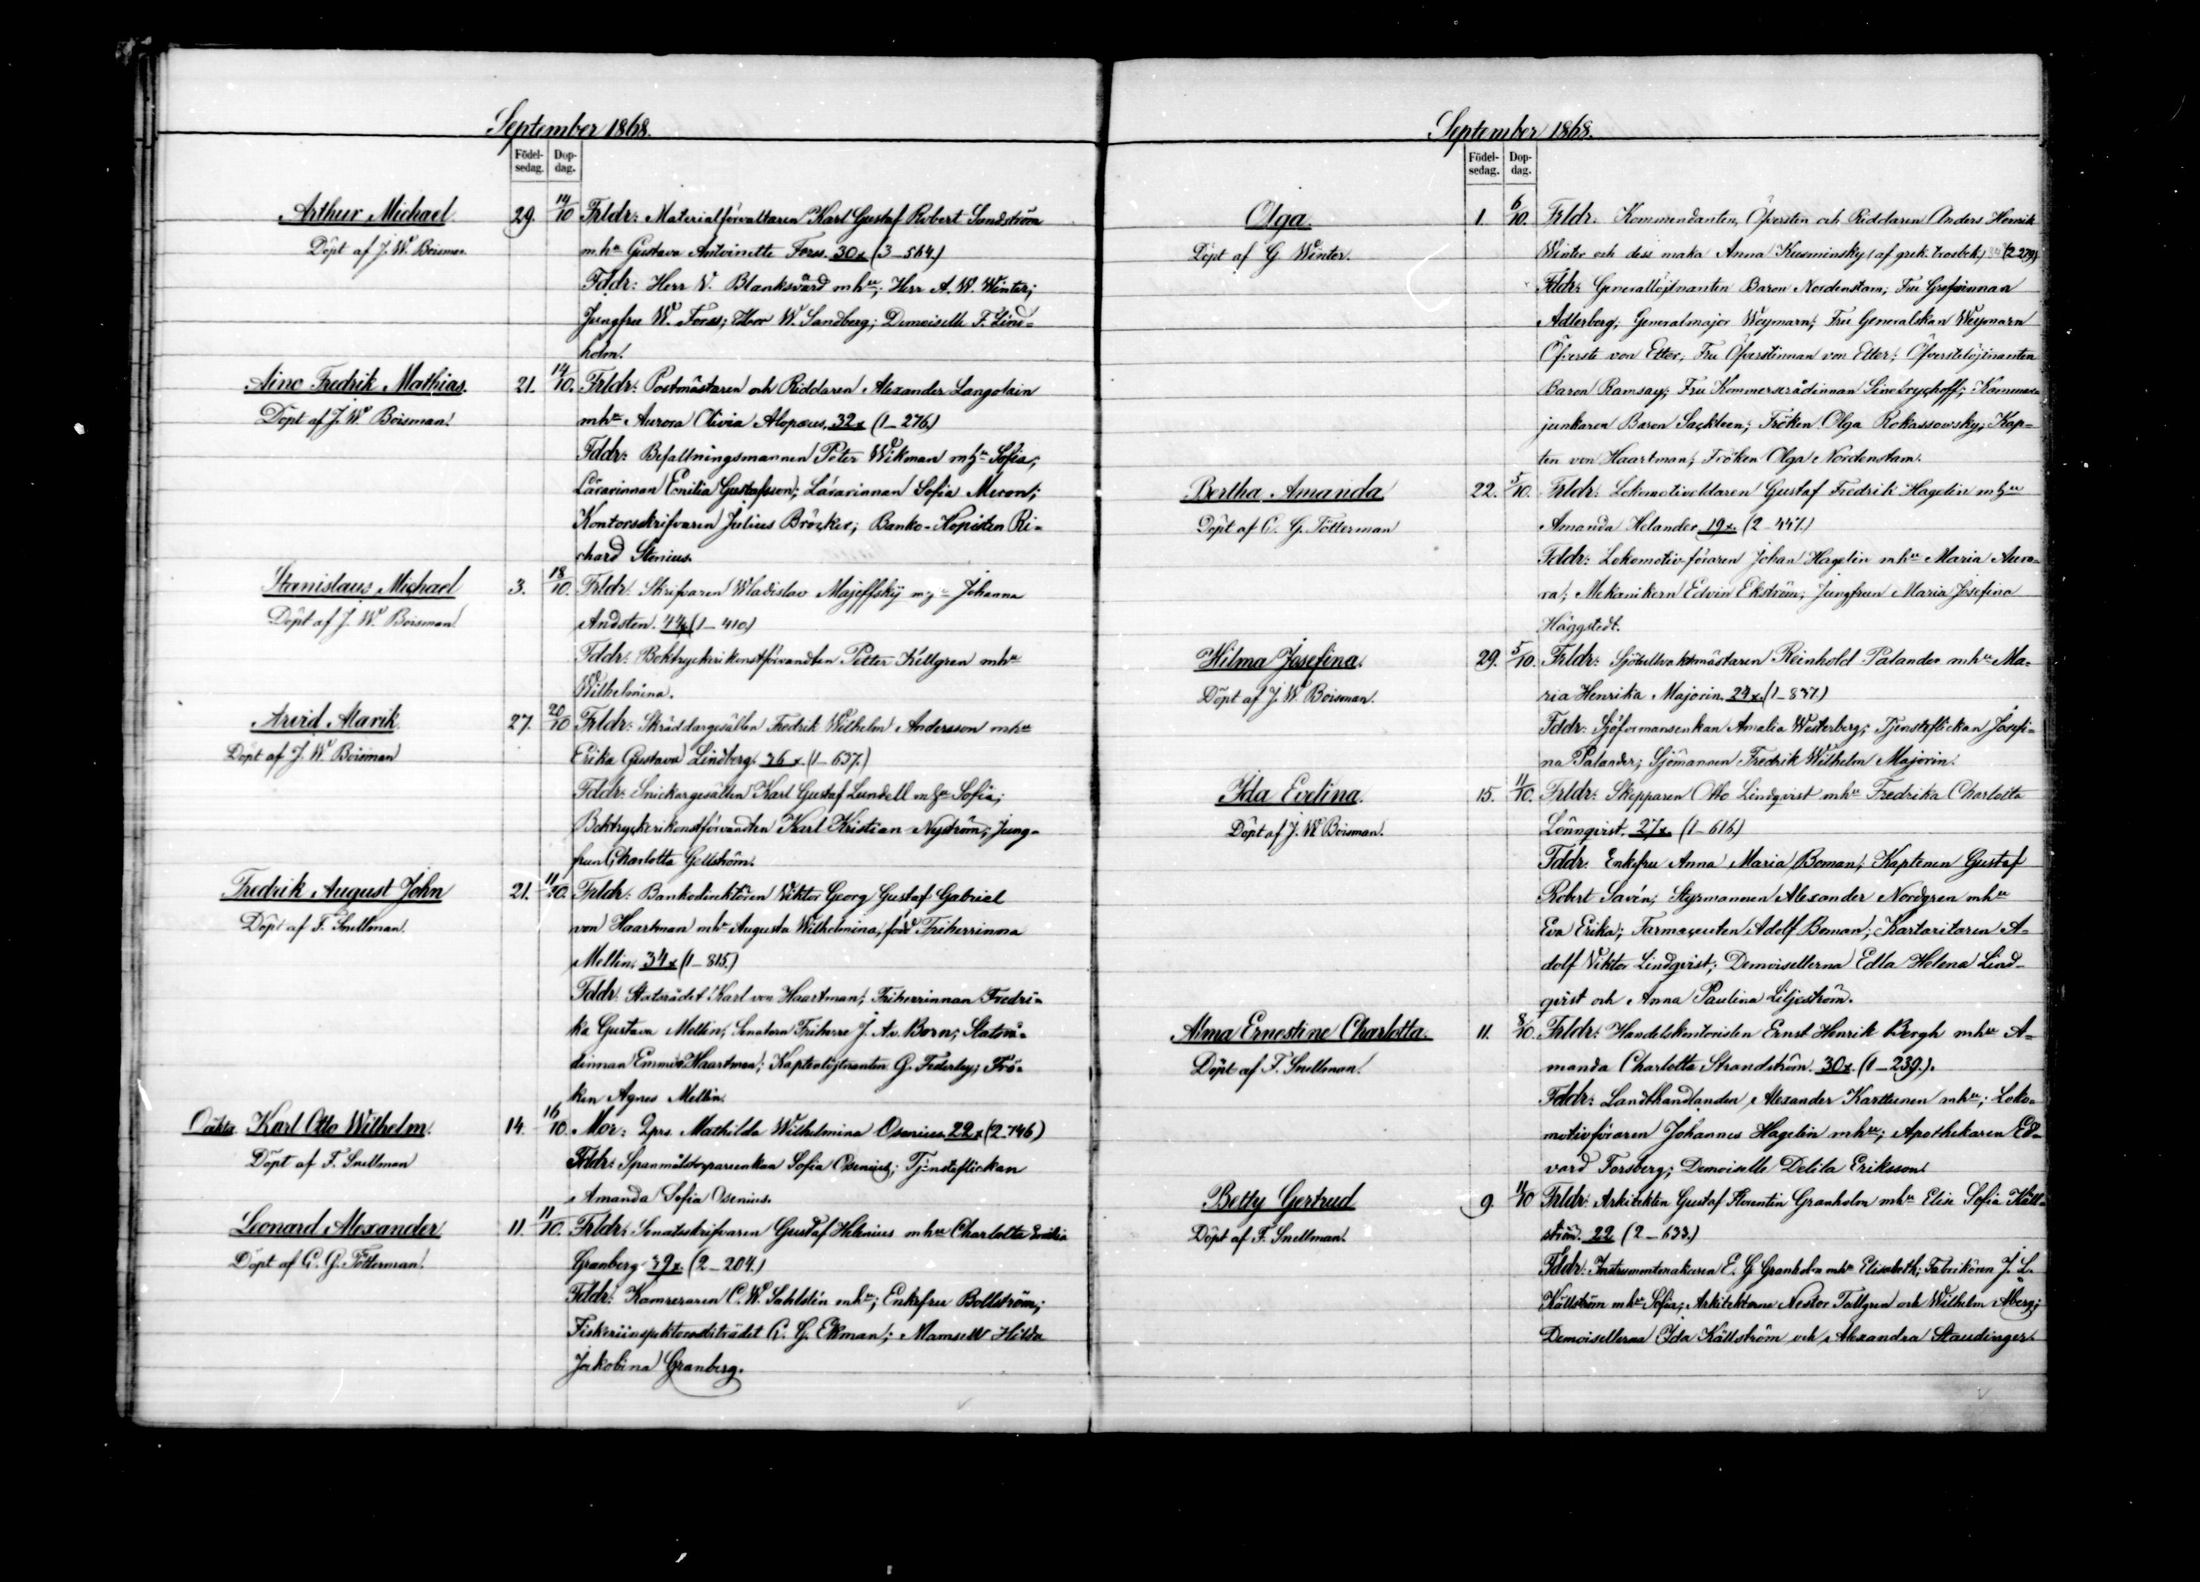 September 1868.
Födel-
sedag. Dop-
dag.
Arthur Michael 29. 14/10 Frldr: Materialförvaltaren Karl Gustaf Robert Sundström
Döpt af J. W. Boisman. m. hu Gustava Antoinette Forss. 30x (3-564.)
Fddr: Herr V. Blanksvärd mhu; Herr A. W. Winter;
Jungfru W. Forss; Herr W. Sandberg; Demoiselle F. Lind-
holm.
Aino Fredrik Mathias. 21. 14/10. Frldr: Postmästaren och Riddaren Alexander Langolain
Döpt af J. W. Boisman. mhu Aurora Olivia Alopæus. 32x (1-276.)
Fddr: Befallningsmannen Peter Wikman mhu Sofia;
Lärarinnan Emilia Gustafsson; Lärarinnan Sofia
Kontorsskrifvaren Julius Bröcker; Banko-Kopisten Ri-
chard Stenius.
Stanislaus Michael 3. 18/10. Frldr: Skrifvaren Wladislav Majeffskij Johanna
Döpt af J. W. Boisman. Andsten. 44x (1-410.)
Fddr: Boktryckerikonstförvandten Petter Kellgren mhu
Wilhelmina.
Arvid Alarik. 27. 20/10 Frldr: Skräddargesällen Fredrik Wilhelm Andersson mhu
Döpt af J. W. Boisman Erika Gustava Lindberg. 36x (1-637.)
Fddr: Snickargesällen Karl Gustaf Lundell mhu Sofia;
Boktryckerikonstförvandten Karl Kristian Nyström; Jung-
frun Charlotta Gellström.
Fredrik August John 21. 11/20. Frldr: Bankodirektören Viktor Georg Gustaf Gabriel
Döpt af F. Snellman. von Haartman mhu Augusta Wilhelmina, född Friherrinna
Mellin. 34x (1-815.)
Fddr: Statsrådet Karl von Haartman; Friherrinnan Fredri-
ka Gustava Mellin; Senatorn Friherre J. A. v. Born; Statsrå-
dinnan Emma Haartman; Kaptenlöjtnanten G. Federley; Frö-
ken Agnes Mellin.
Oäkta Karl Otto Wilhelm. 14. 16/10. Mor: Qprs. Mathilda Wilhelmina Osenius 22x (2-746)
Döpt af F. Snellman Fddr: Sofia Osenius; Tjensteflickan
Amanda Sofia Osenius.
Leonard Alexander 11. 11/10. Frldr: Senatsskrifvaren Gustaf Helenius mhu Charlotta Emilia
Döpt af C. G. Tötterman. Granberg 39x. (2-204.)
Fddr: Kamreraren C. W. Sahlstén mhu; Enkefru Bollström;
C. G. Ekman; Mamsell Hilda
Jakobina Granberg.
September 1868.
Födel-
sedag. Dop-
dag.
Olga. 1. 6/10. Frldr: Kommendanten, Öfversten och Riddaren Anders Henrik
Döpt af G Winter. Winter och dess maka Anna Kusminsky (af grek. trosbek.) 34 (2-279)
Fddr: Generallöjtnanten Baron Nordenstam; Fru Grefvinnan
Adlerberg; Generalmajor Weymarn; Fru Generalskan Weymarn
Öfverste von Etter; Fru Öfverstinnan von Etter; Öfverstelöjtnanten
Baron Ramsay; Fru Kommersrådinnan Sinebrychoff; Kammar-
junkaren Baron Sackleen; Fröken Olga Rokassowsky; Kap-
ten von Haartman; Fröken Olga Nordenstam.
Bertha Amanda 22. 5/10. Frldr: Lokomotiveldaren Gustaf Fredrik Hagelin mhu
Döpt af C. G. Tötterman Amanda Helander 19x. (2-447.)
Fddr: Lokomotivföraren Johan Hagelin mhu Maria Auro-
ra; Mekanikern Edvin Ekström; Jungfrun Maria Josefina
Häggstedt.
Hilma Josefina. 29. 5/10. Frldr: Sjötullvaktmästaren Reinhold Palander mhu Ma-
Döpt af J. W. Boisman. ria Henrika Majorin. 24x. (1-837.)
Fddr: Sjöformansenkan Amalia Westerberg; Tjensteflickan Josefi-
na Palander; Sjömannen Fredrik Wilhelm Majorin.
Ida Evelina. 15. 11/10. Frldr: Skepparen Otto Lindqvist mhu Fredrika Charlotta
Döpt af J. W. Boisman. Lönnqvist. 27x. (1-616.)
Fddr: Enkefru Anna Maria Boman; Kaptenen Gustaf
Robert Savén; Styrmannen Alexander Nordgren mhu
Eva Erika; Farmaceuten Adolf Boman; A-
dolf Viktor Lindqvist; Demoisellerna Edla Helena Lind-
qvist och Anna Paulina Liljeström.
Alma Ernestine Charlotta. 11. 8/10. Frldr: Handelskontoristen Ernst Henrik Bergh mhu A-
Döpt af F. Snellman. manda Charlotta Strandström. 30x. (1-239.).
Fddr: Landthandlanden Alexander Karttunen mhu; Loko-
motivföraren Johannes Hagelin mhu; Apothekaren Ed-
vard Forsberg; Demoiselle Delila Eriksson.
Betty Gertrud 9. 11/10 Frldr: Arkitekten Gustaf Florentin Granholm mhu Elin Sofia Käll-
Döpt af F. Snellman. ström. 22 (2-633.)
Fddr: Instrumentmakaren E. G Granholm mhu Elisabeth; Fabrikören J. L.
Källström mhu Sofia; Arkitekterna Nestor Tallgren och Wilhelm Åberg;
Demoisellerna Ida Källström och Alexandra Staudinger.